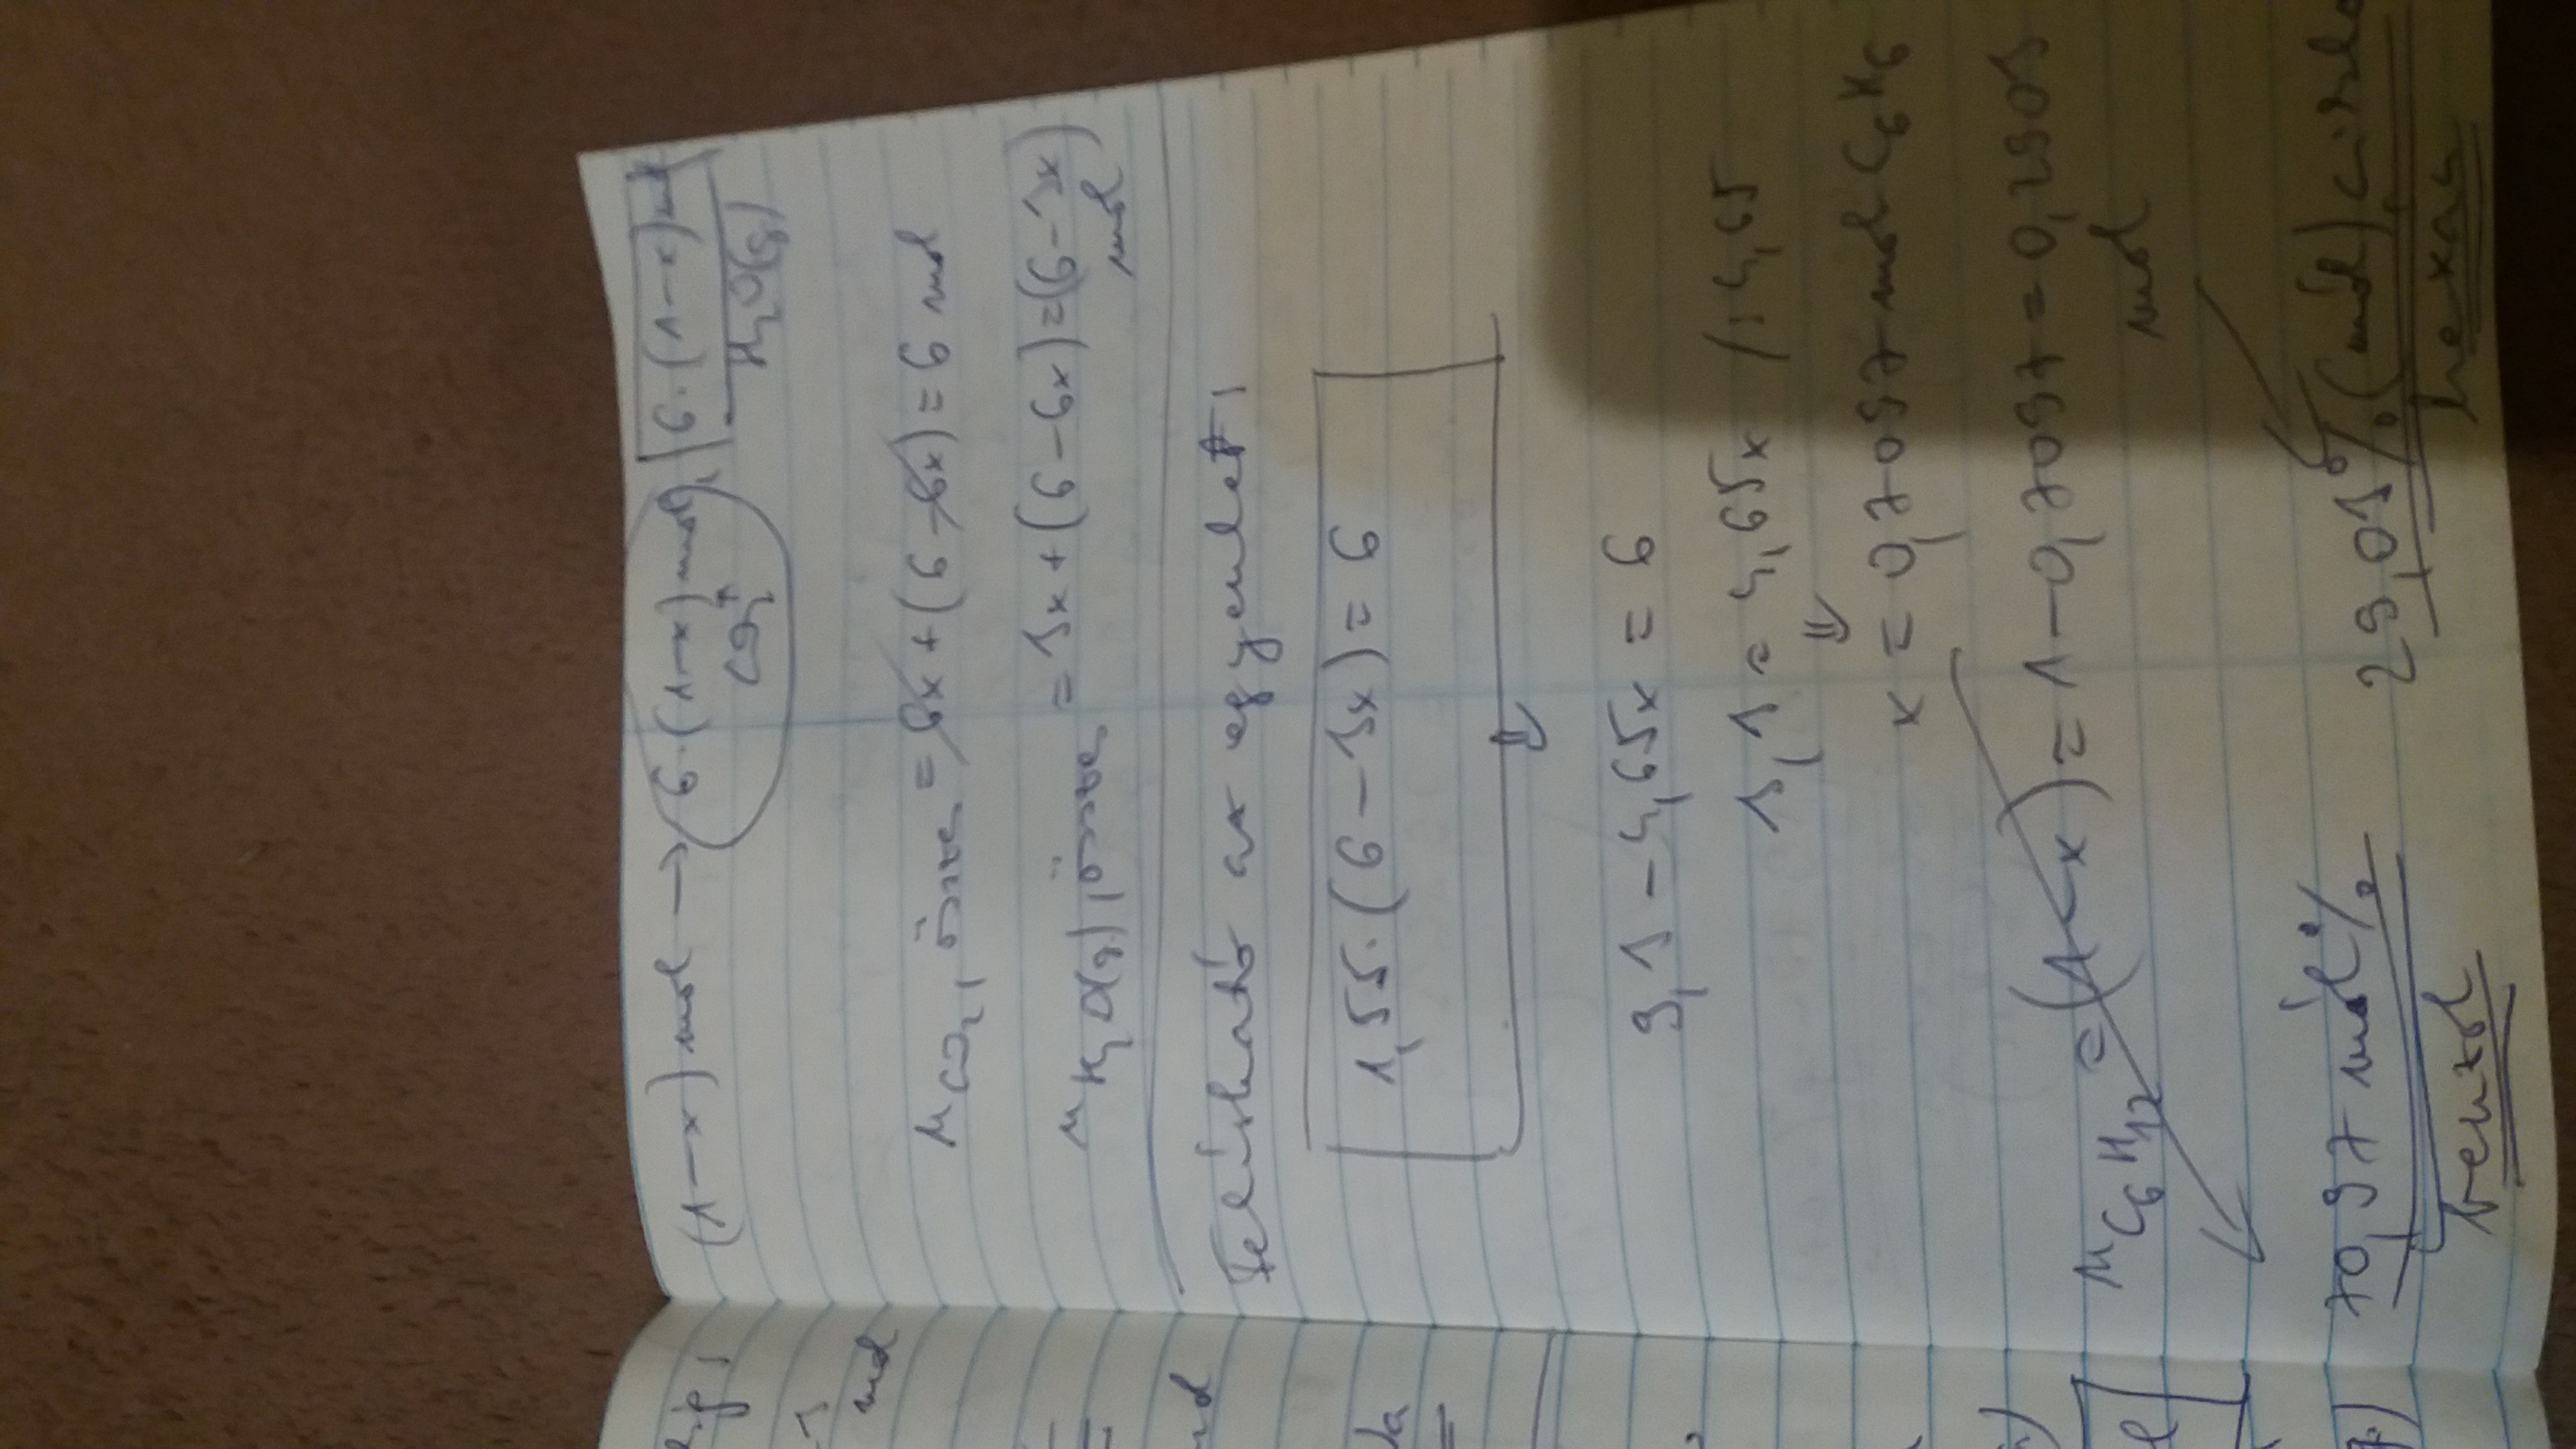 (1-x) mol → 6·(1-x) mol CO₂, 6·(1-x) mol H₂O(g)
n CO₂, össze = 6x + (6-6x) = 6 mol
n H₂O(g), össze = 3x + (6-6x) = (6-3x) mol
Felírható az egyenlet,
1,55·(6-3x) = 6
⇓
9,3 - 4,65x = 6
3,3 = 4,65x /:4,65
⇓
x = 0,7097 mol C₆H₆
n C₆H₁₂ = (1-x) = 1-0,7097 = 0,2903 mol
70,97 mol% benzol
29,03% (mol) ciklo
hexán
mol